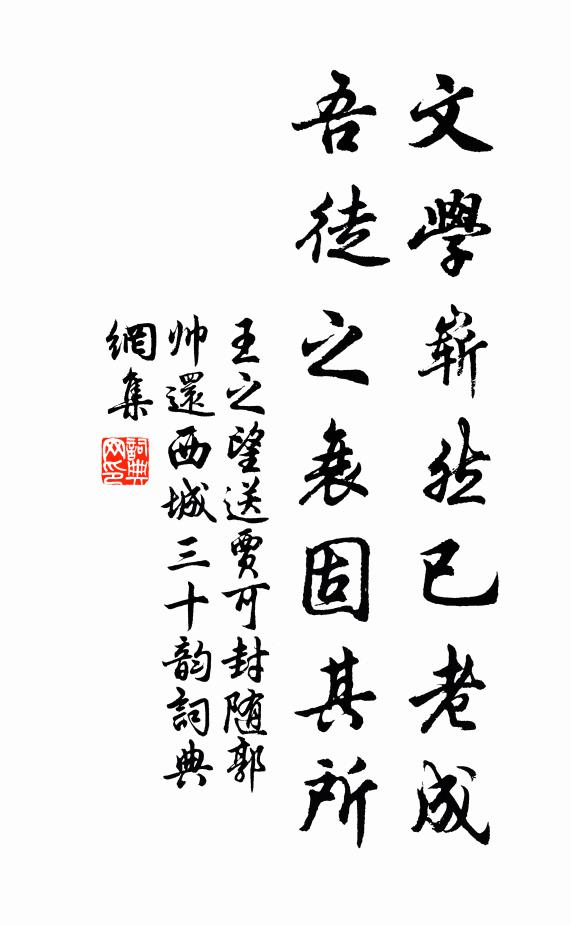 文學嶄然已老成
吾徒之衰固其所
王之望送賈可封随郭
帅還西城三十韵詞典
網集
詞典網印